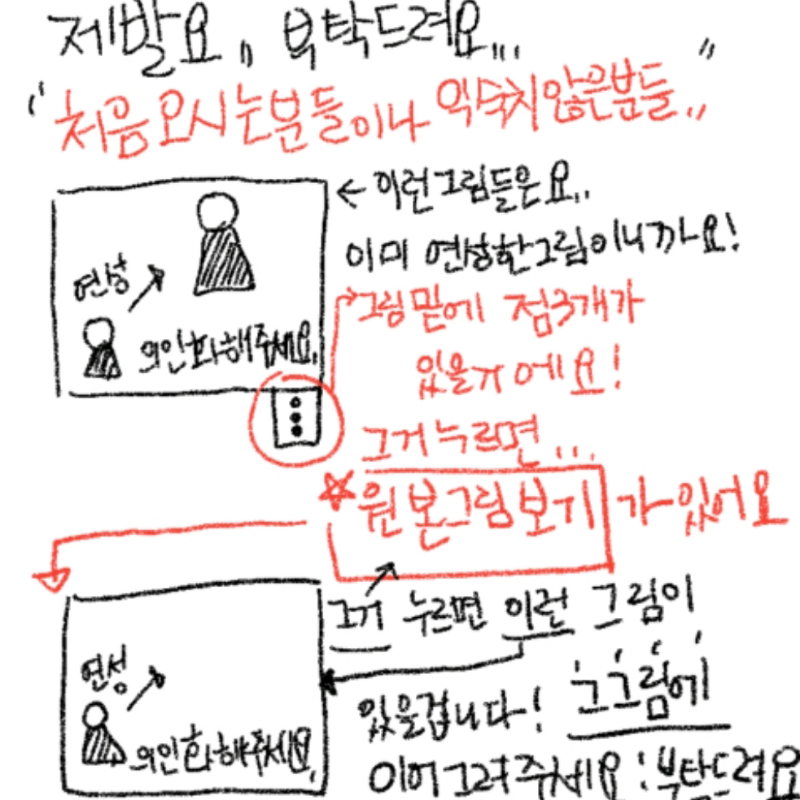 제발요,, 부탁드려요,,,
"처음오시는분들이나 익숙치않은분들,,"
← 이런그림들은요,,
이미 연성한그림이니까요!
연성
의인화해주세요.
그림밑에 점3개가
있을거에요!
그거누르면...
☆원본그림보기 가있어요
그거 누르면 이런 그림이
있을겁니다! 그그림에
이어그려주세요!부탁드려요
연성
의인화해주세요.